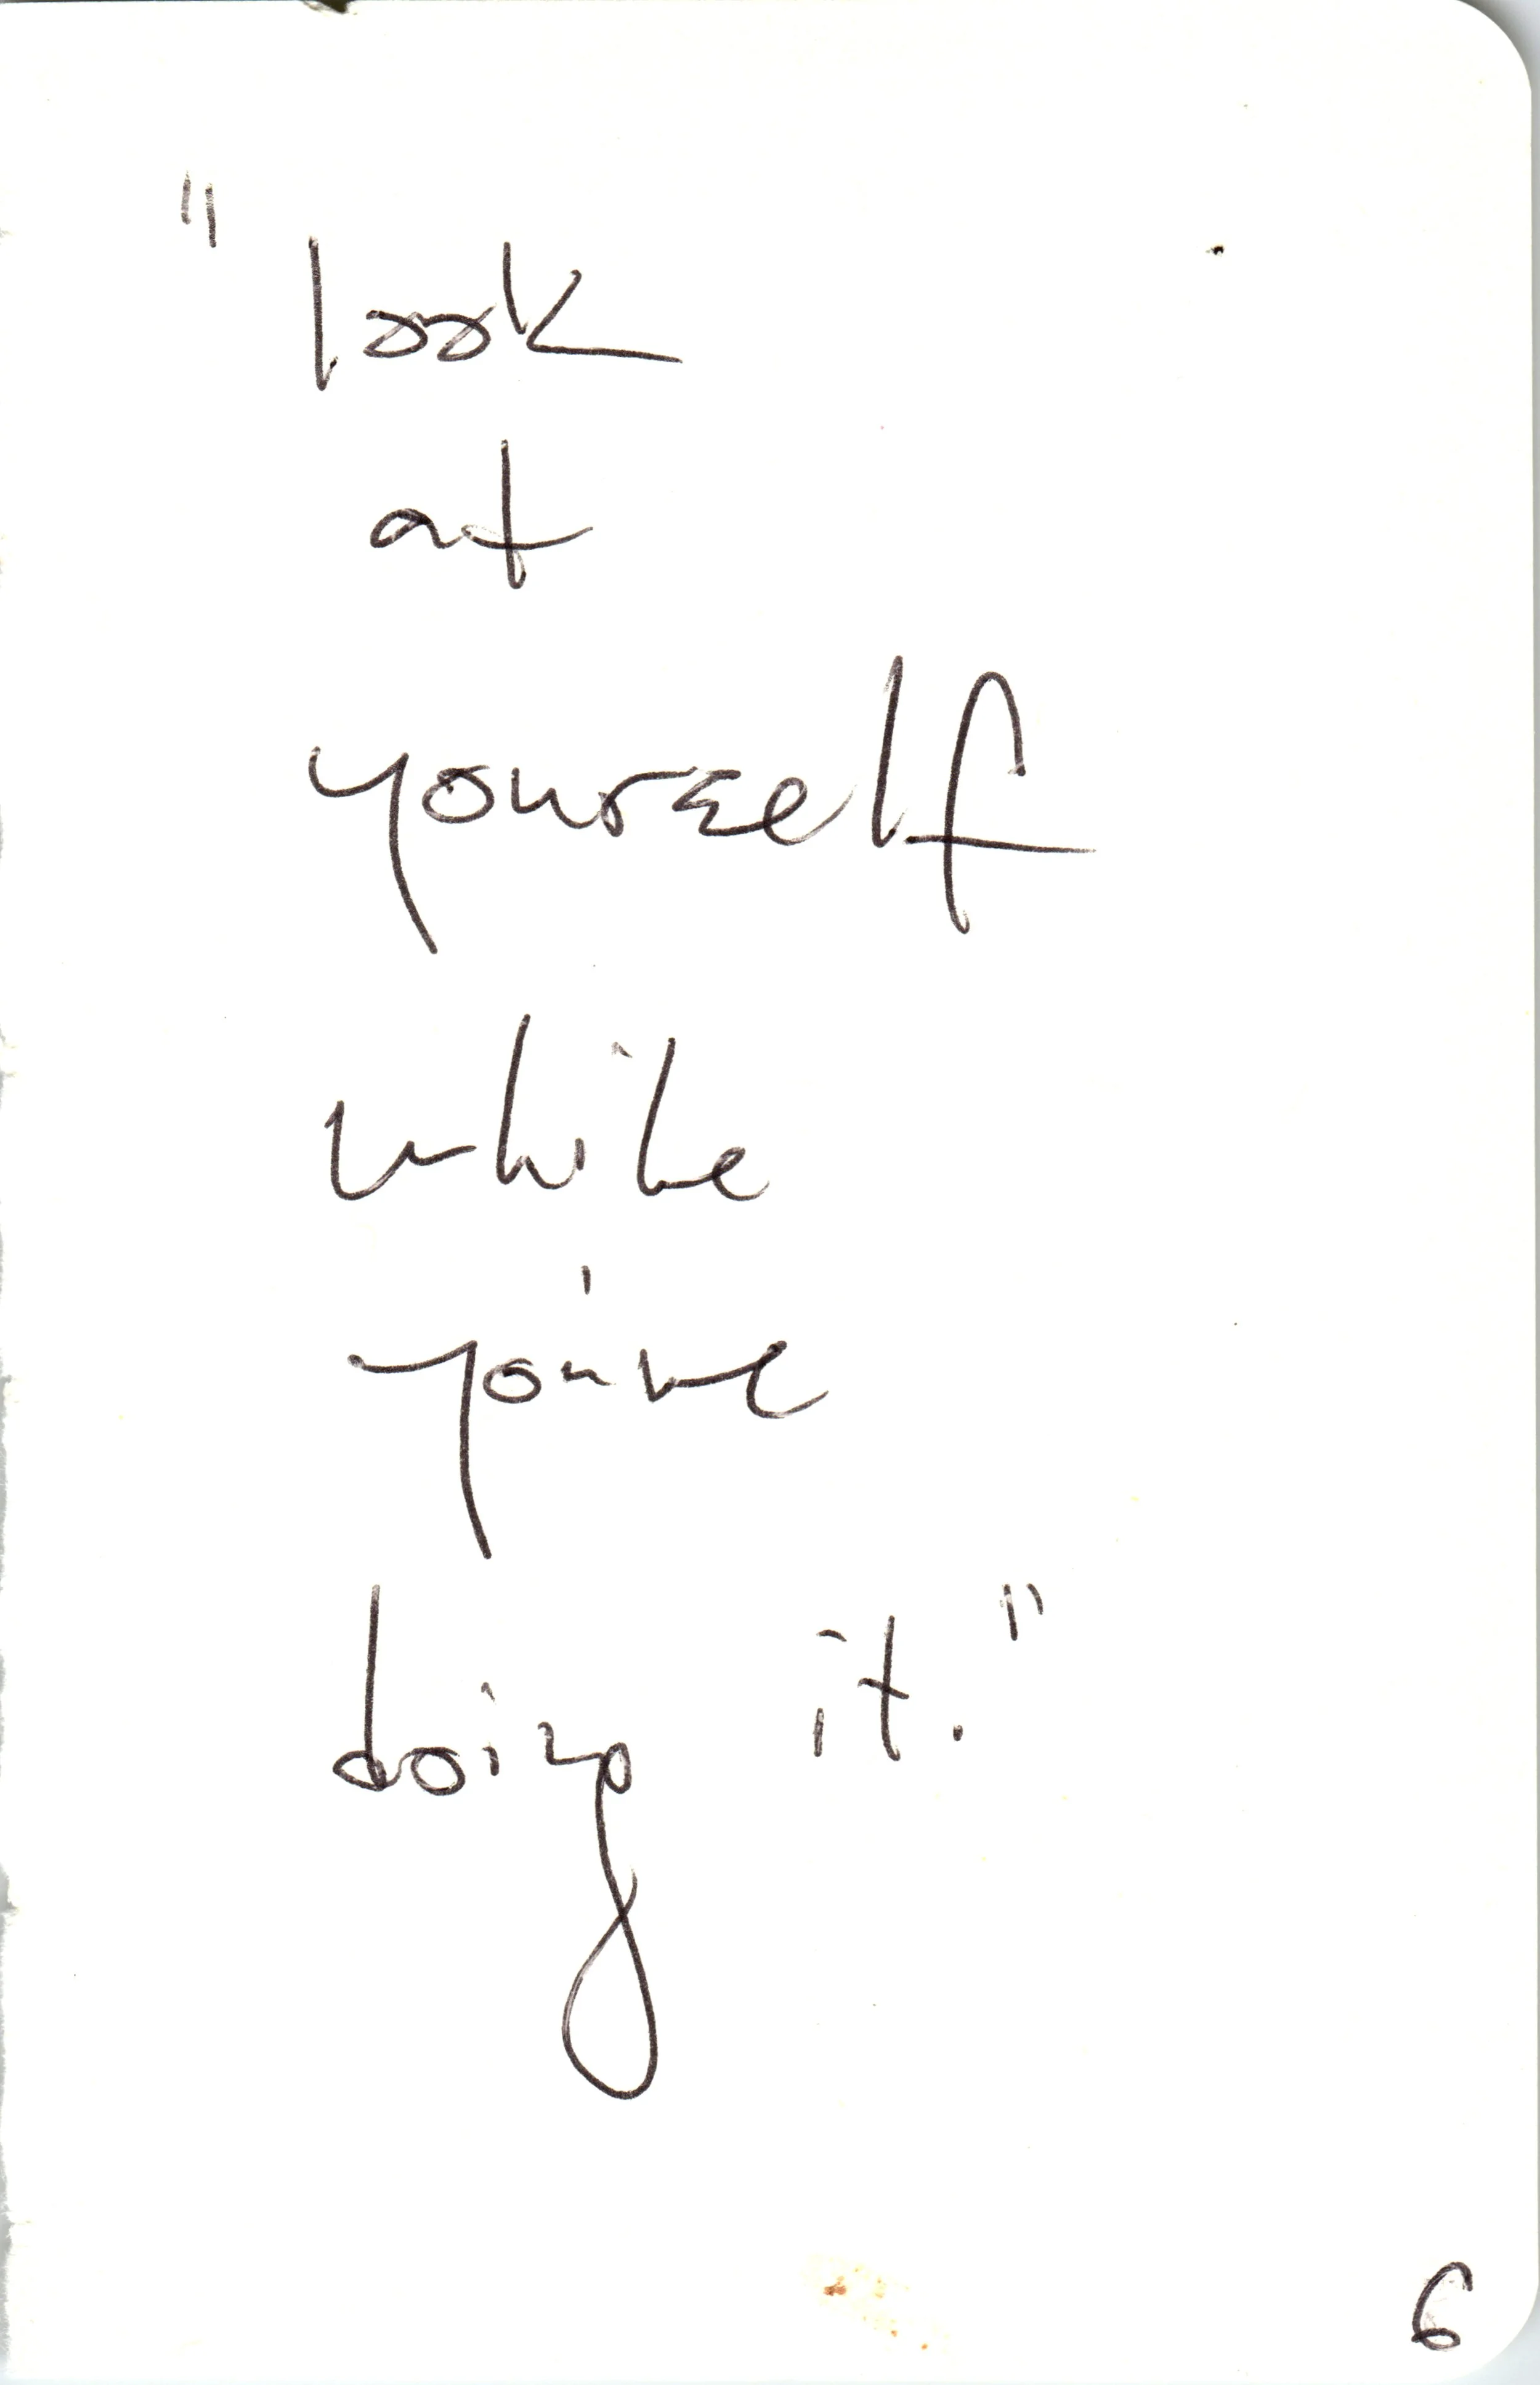 "look
at
yourself
while
you're
doing it."
6